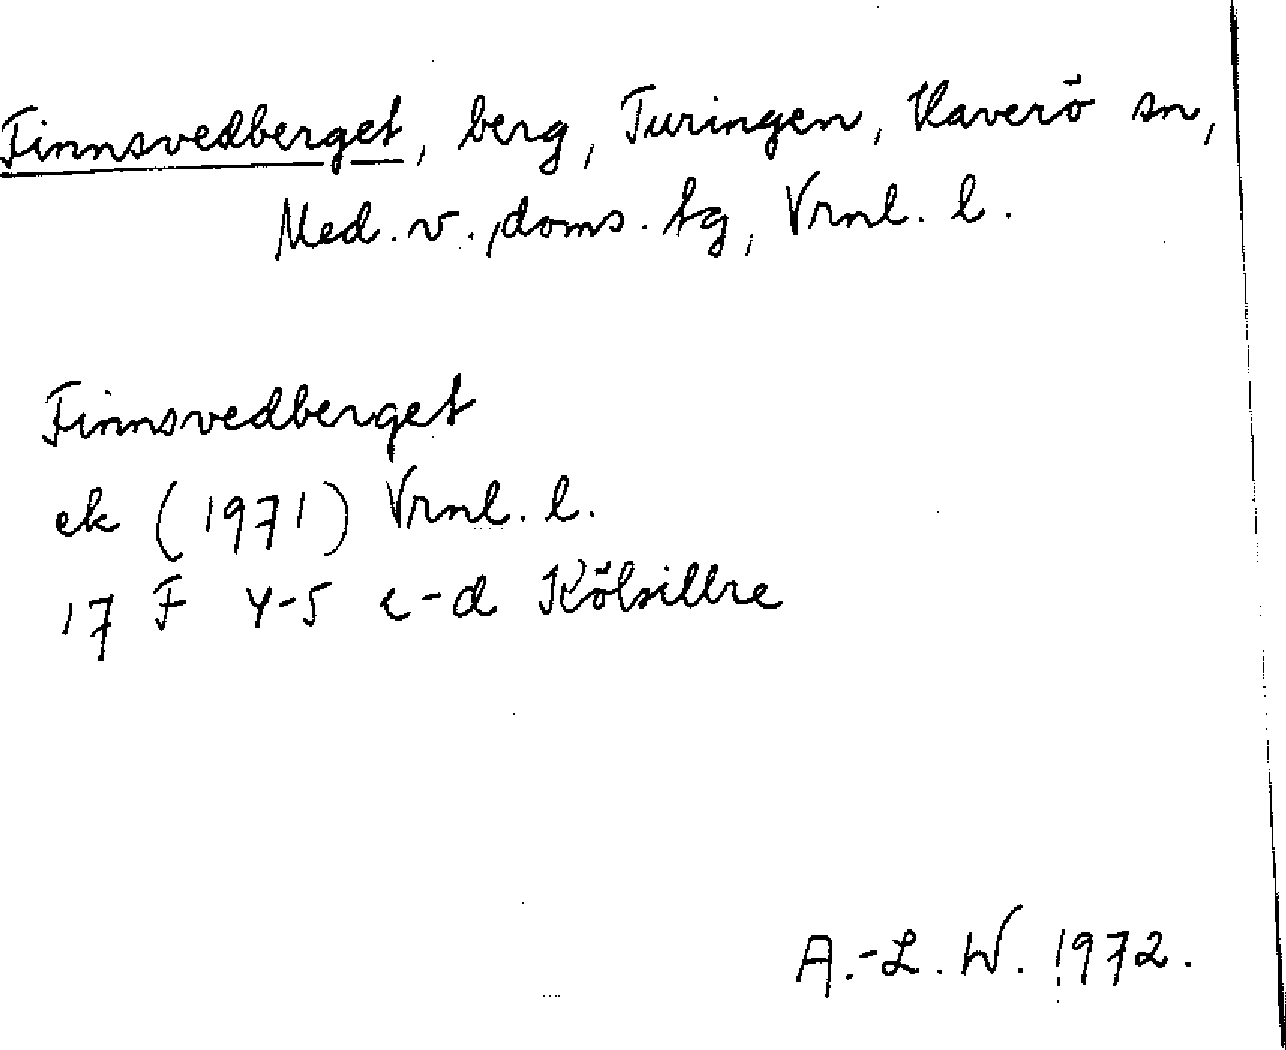 Finnsvedberget, berg, Turingen, Haverö sn,
Med. v., doms. tg, Vrnl. l.
Finnsvedberget
ek (1971) Vrnl. l.
17 F 4-5 c-d Kölsillre
A.-L. W. 1972.